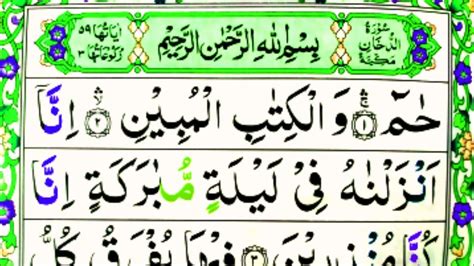 سُوْرَةُ الدُّخَانِ مَكِّيَّةٌ
بِسْمِ اللهِ الرَّحْمٰنِ الرَّحِيْمِ
اٰيَاتُهَا ٥٩ رُكُوْعَاتُهَا ٣
حٰمٓ ۝١ وَ الْكِتٰبِ الْمُبِيْنِ ۝٢ اِنَّاۤ
اَنْزَلْنٰهُ فِيْ لَيْلَةٍ مُّبٰرَكَةٍ اِنَّا
كُنَّا مُنْذِرِيْنَ ۝٣ فِيْهَا يُفْرَقُ كُلُّ